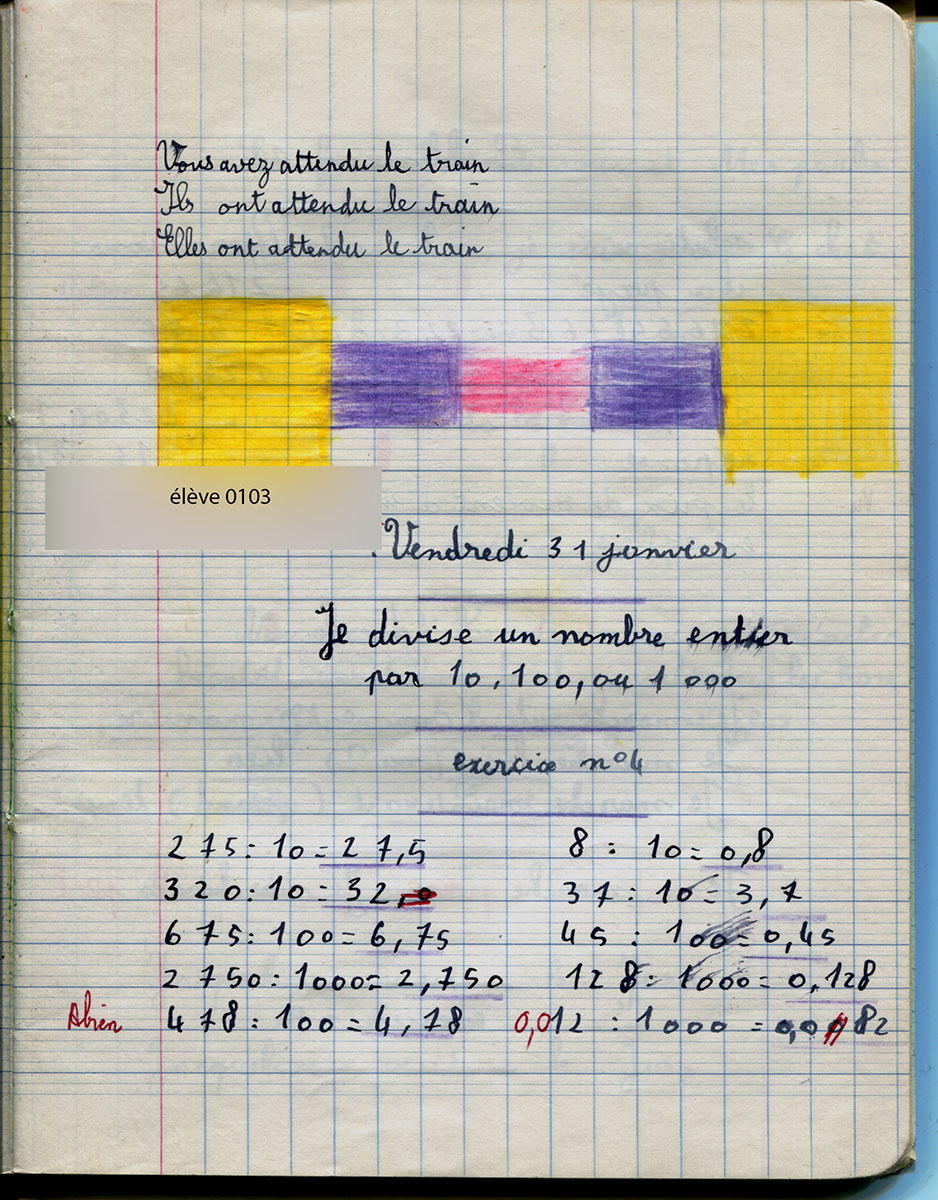 Vous avez attendu le train
Ils ont attendu le train
Elles ont attendu le train
élève 0103
Vendredi 31 janvier
Je divise un nombre entier
par 10, 100, ou 1 000
exercice n°4
275 : 10 = 27,5
8 : 10 = 0,8
320 : 10 = 32,0
37 : 10 = 3,7
675 : 100 = 6,75
45 : 100 = 0,45
2 750 : 1000 = 2,750
128 : 1000 = 0,128
478 : 100 = 4,78
0,012 : 1000 =